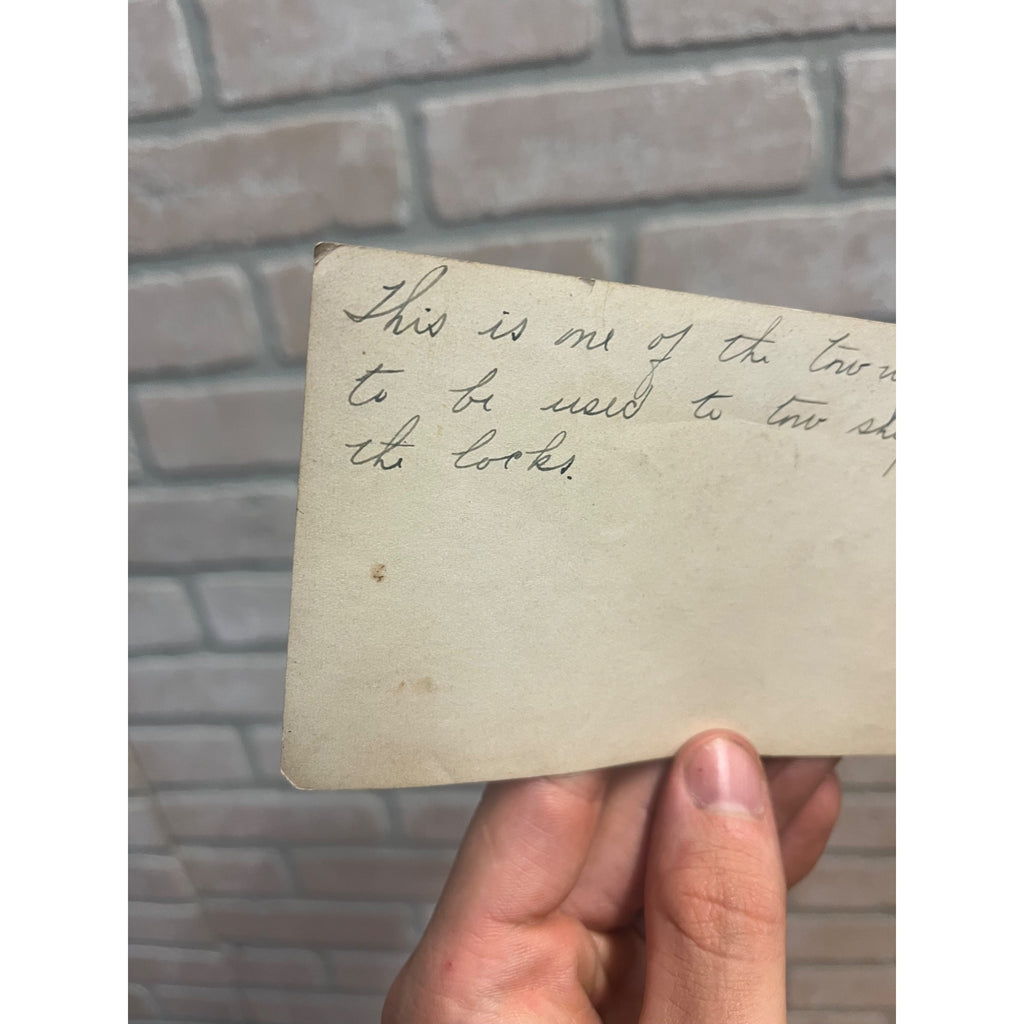 This is one of the tow
to be used to tow
the locks.